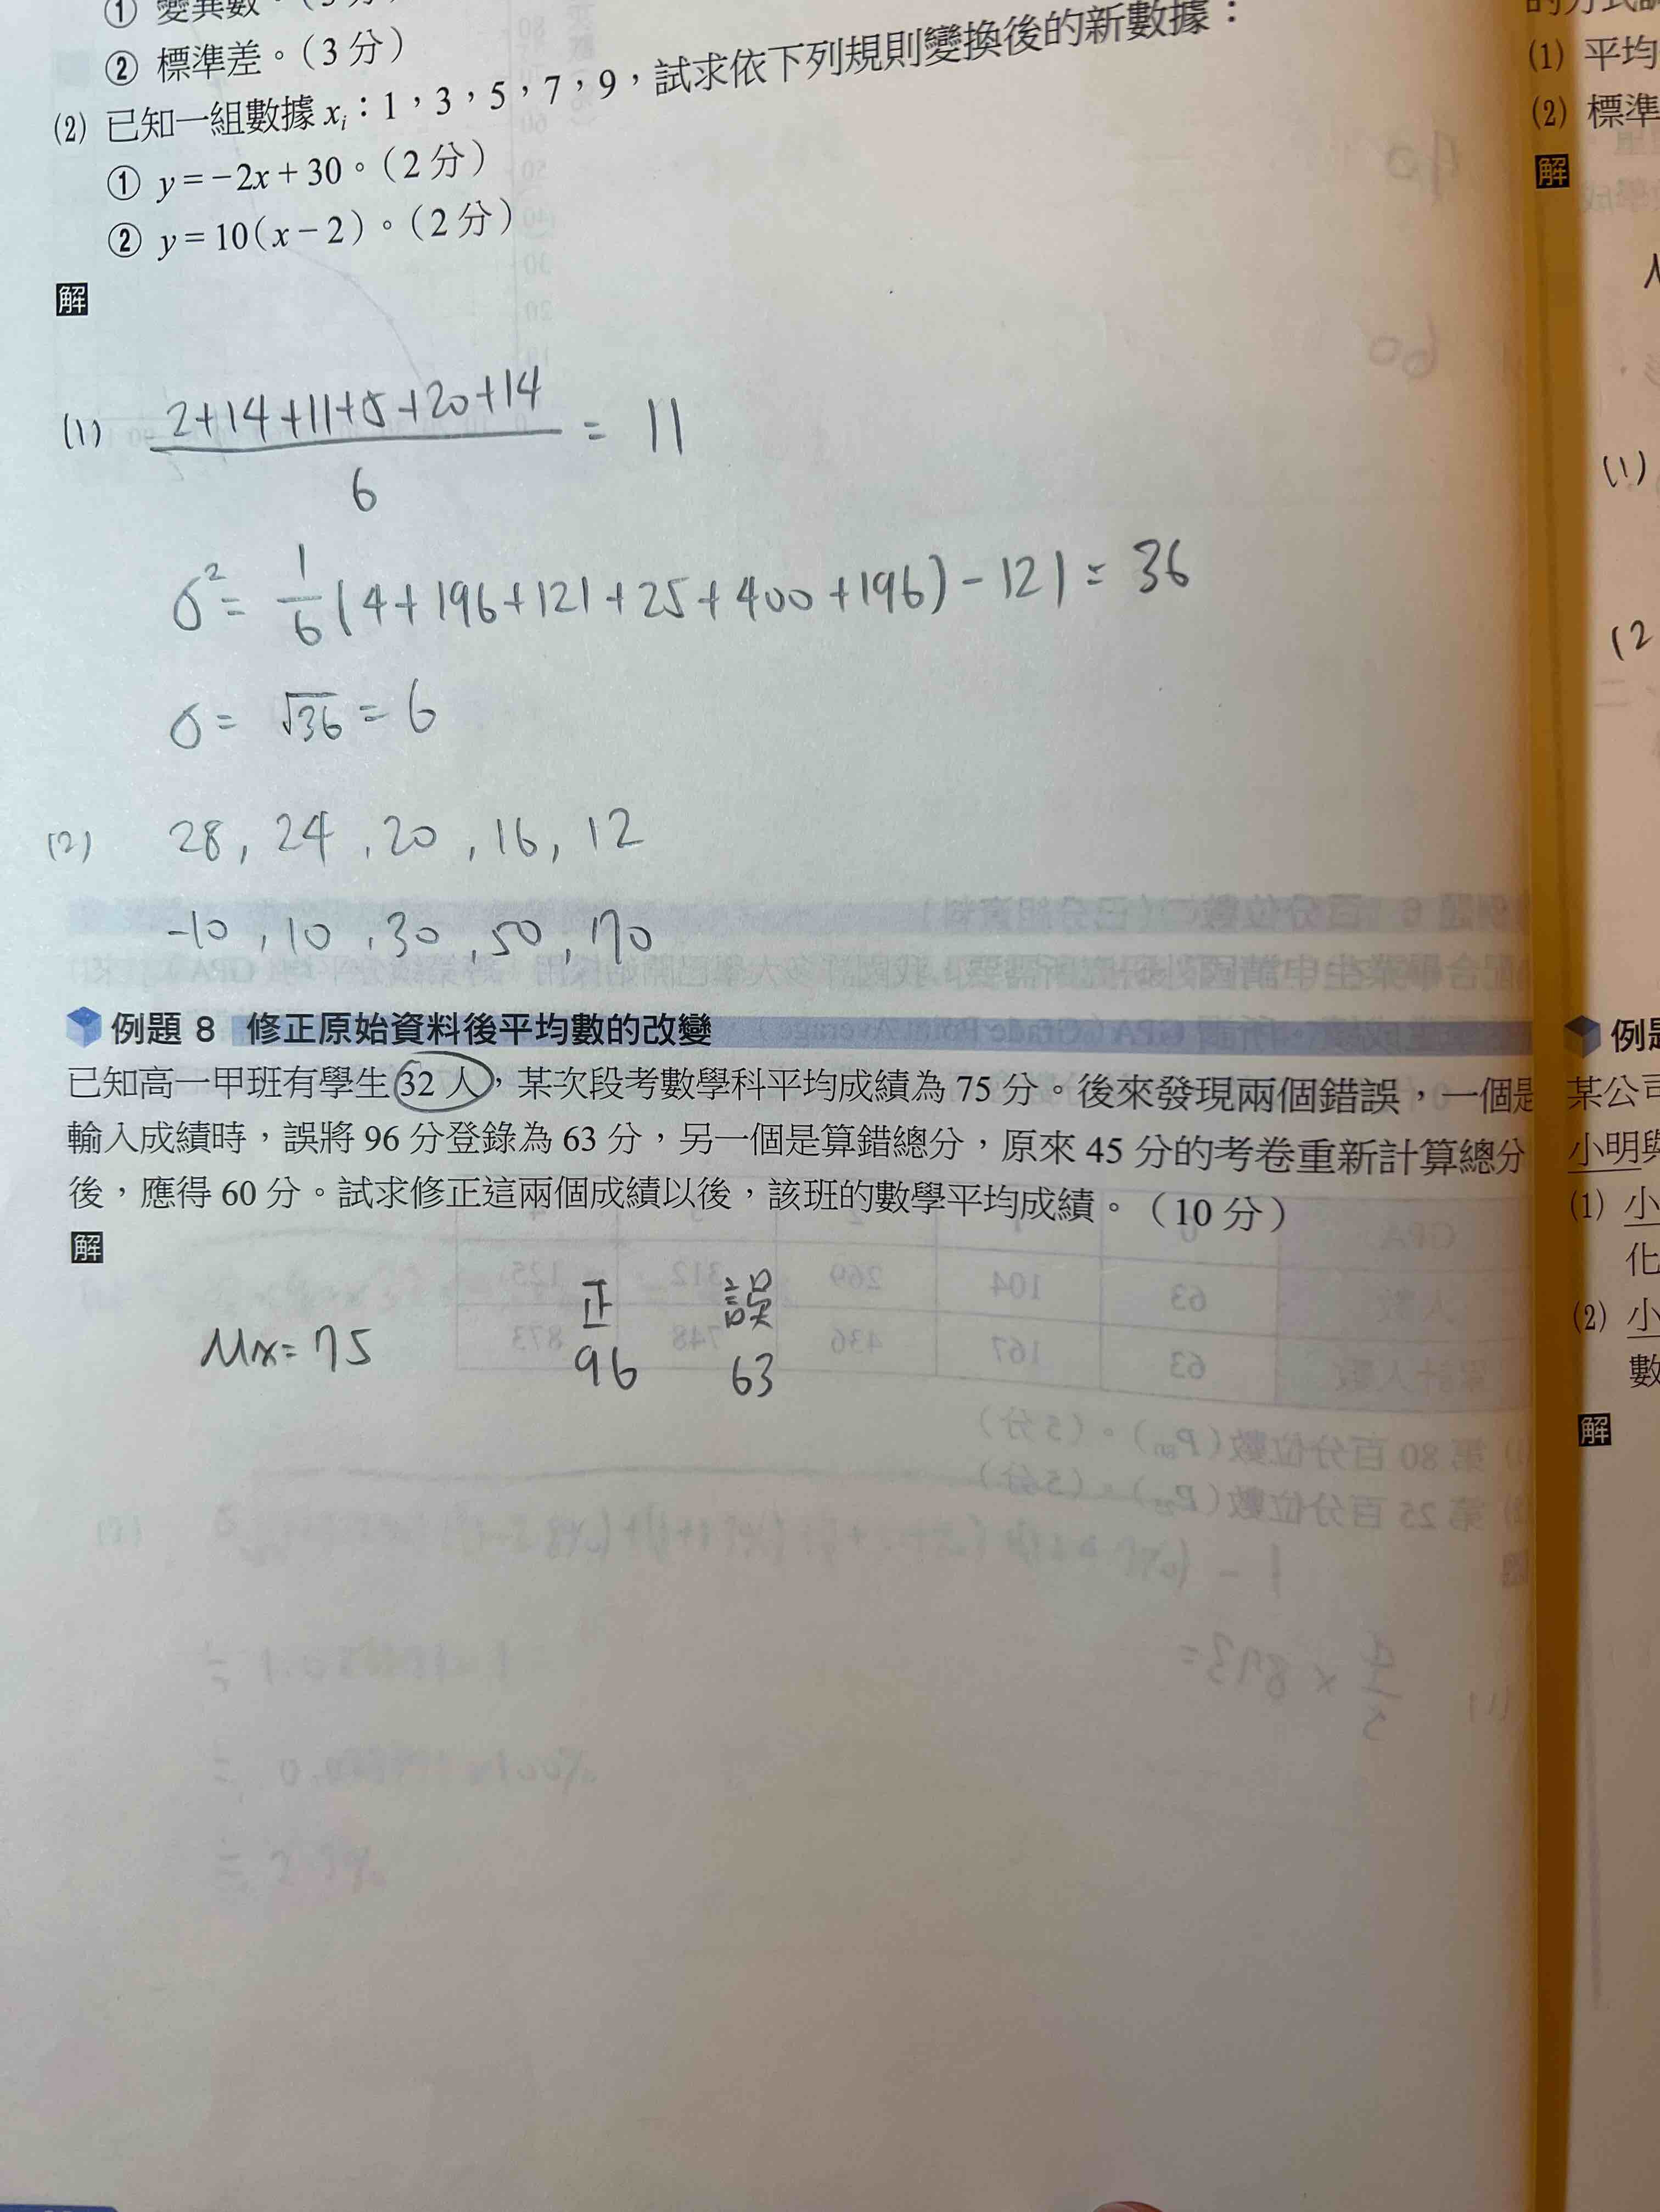 ① 變異數。(3分)
② 標準差。(3分)
(2) 已知一組數據 xᵢ：1，3，5，7，9，試求依下列規則變換後的新數據：
① y=-2x+30。(2分)
② y=10(x-2)。(2分)
解
(1) (2+14+11+5+20+14)/6 = 11
σ²= 1/6(4+196+121+25+400+196)-121=36
σ= √36=6
(2) 28, 24, 20, 16, 12
-10, 10, 30, 50, 70
例題 8 修正原始資料後平均數的改變
已知高一甲班有學生32人，某次段考數學科平均成績為75分。後來發現兩個錯誤，一個是
輸入成績時，誤將96分登錄為63分，另一個是算錯總分，原來45分的考卷重新計算總分
後，應得60分。試求修正這兩個成績以後，該班的數學平均成績。(10分)
解
正 誤
Mx=75 96 63
(1) 平均
(2) 標準
解
(1)
(2
例題
某公司
小明與
(1) 小
化
(2) 小
數
解